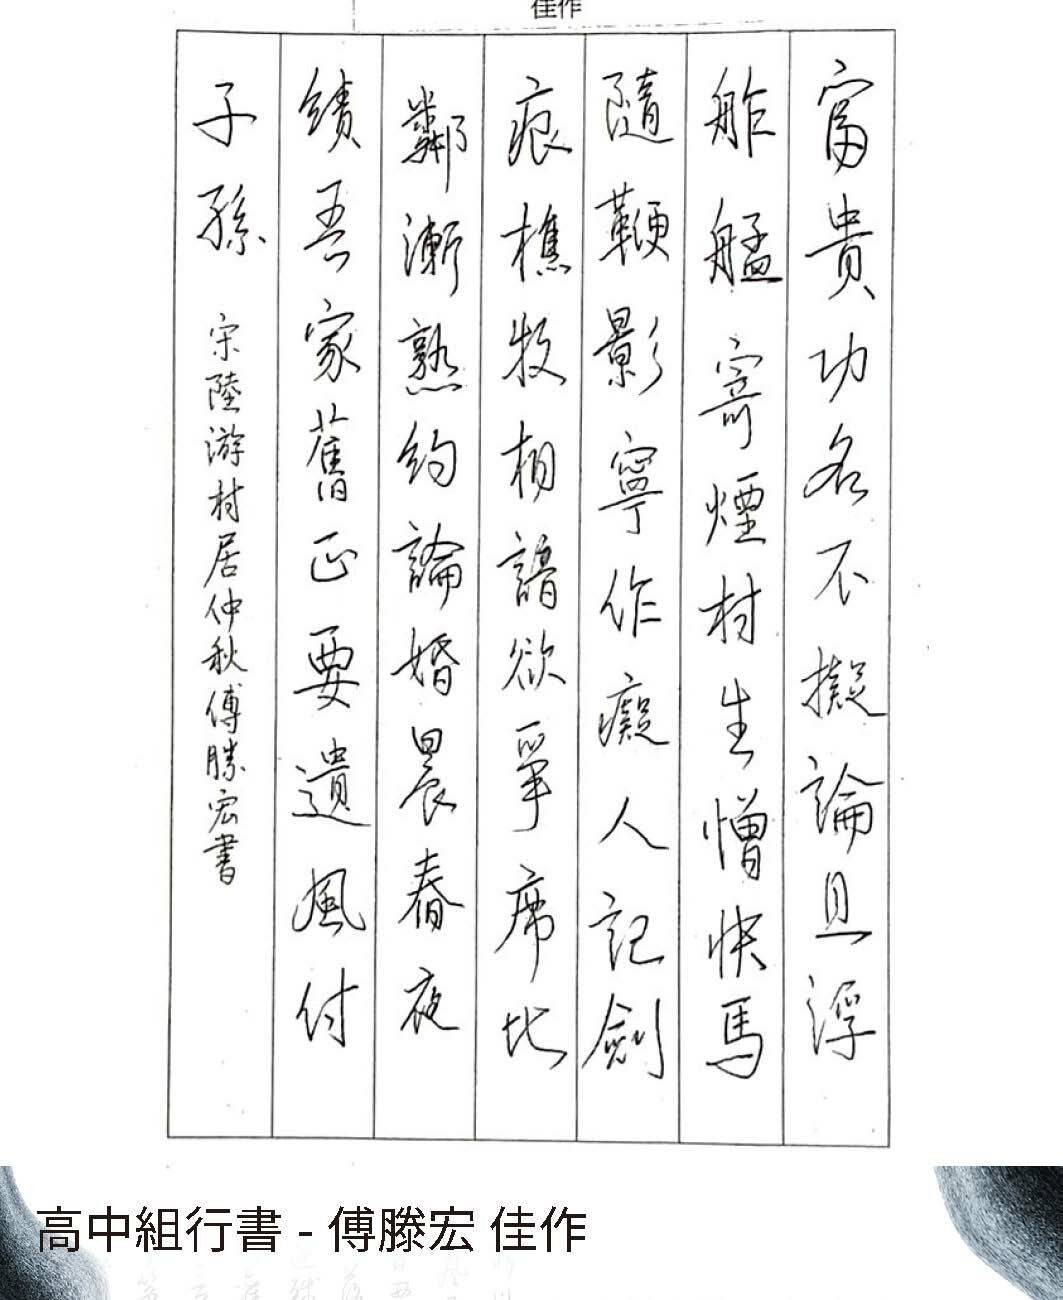 佳作
富貴功名不擬論且浮
舴艋寄煙村生憎快馬
隨鞭影寧作癡人記劍
痕樵牧相諳欲爭席比
鄰漸熟約論婚晨舂夜
績吾家舊正要遺風付
子孫 宋陸游村居仲秋傅勝宏書
高中組行書 - 傅滕宏 佳作